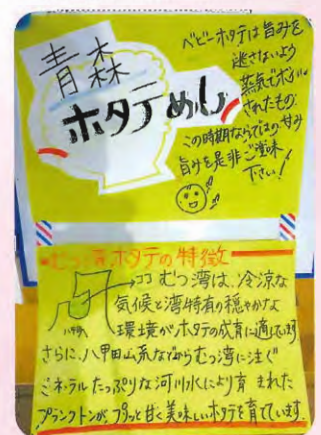 青森
ホタテめし
ベビーホタテは旨みを
逃さないよう
蒸気でボイル
されたもの。
この時期ならではの甘み
旨みを是非ご賞味
下さい!
むつ湾ホタテの特徴
ココ むつ湾は、冷涼な
気候と湾特有の穏やかな
環境がホタテの成育に適しています
さらに、八甲田山系などからむつ湾に注ぐ
ミネラルたっぷりな河川水により育まれた
プランクトンが、プリッと甘く美味しいホタテを育てています。